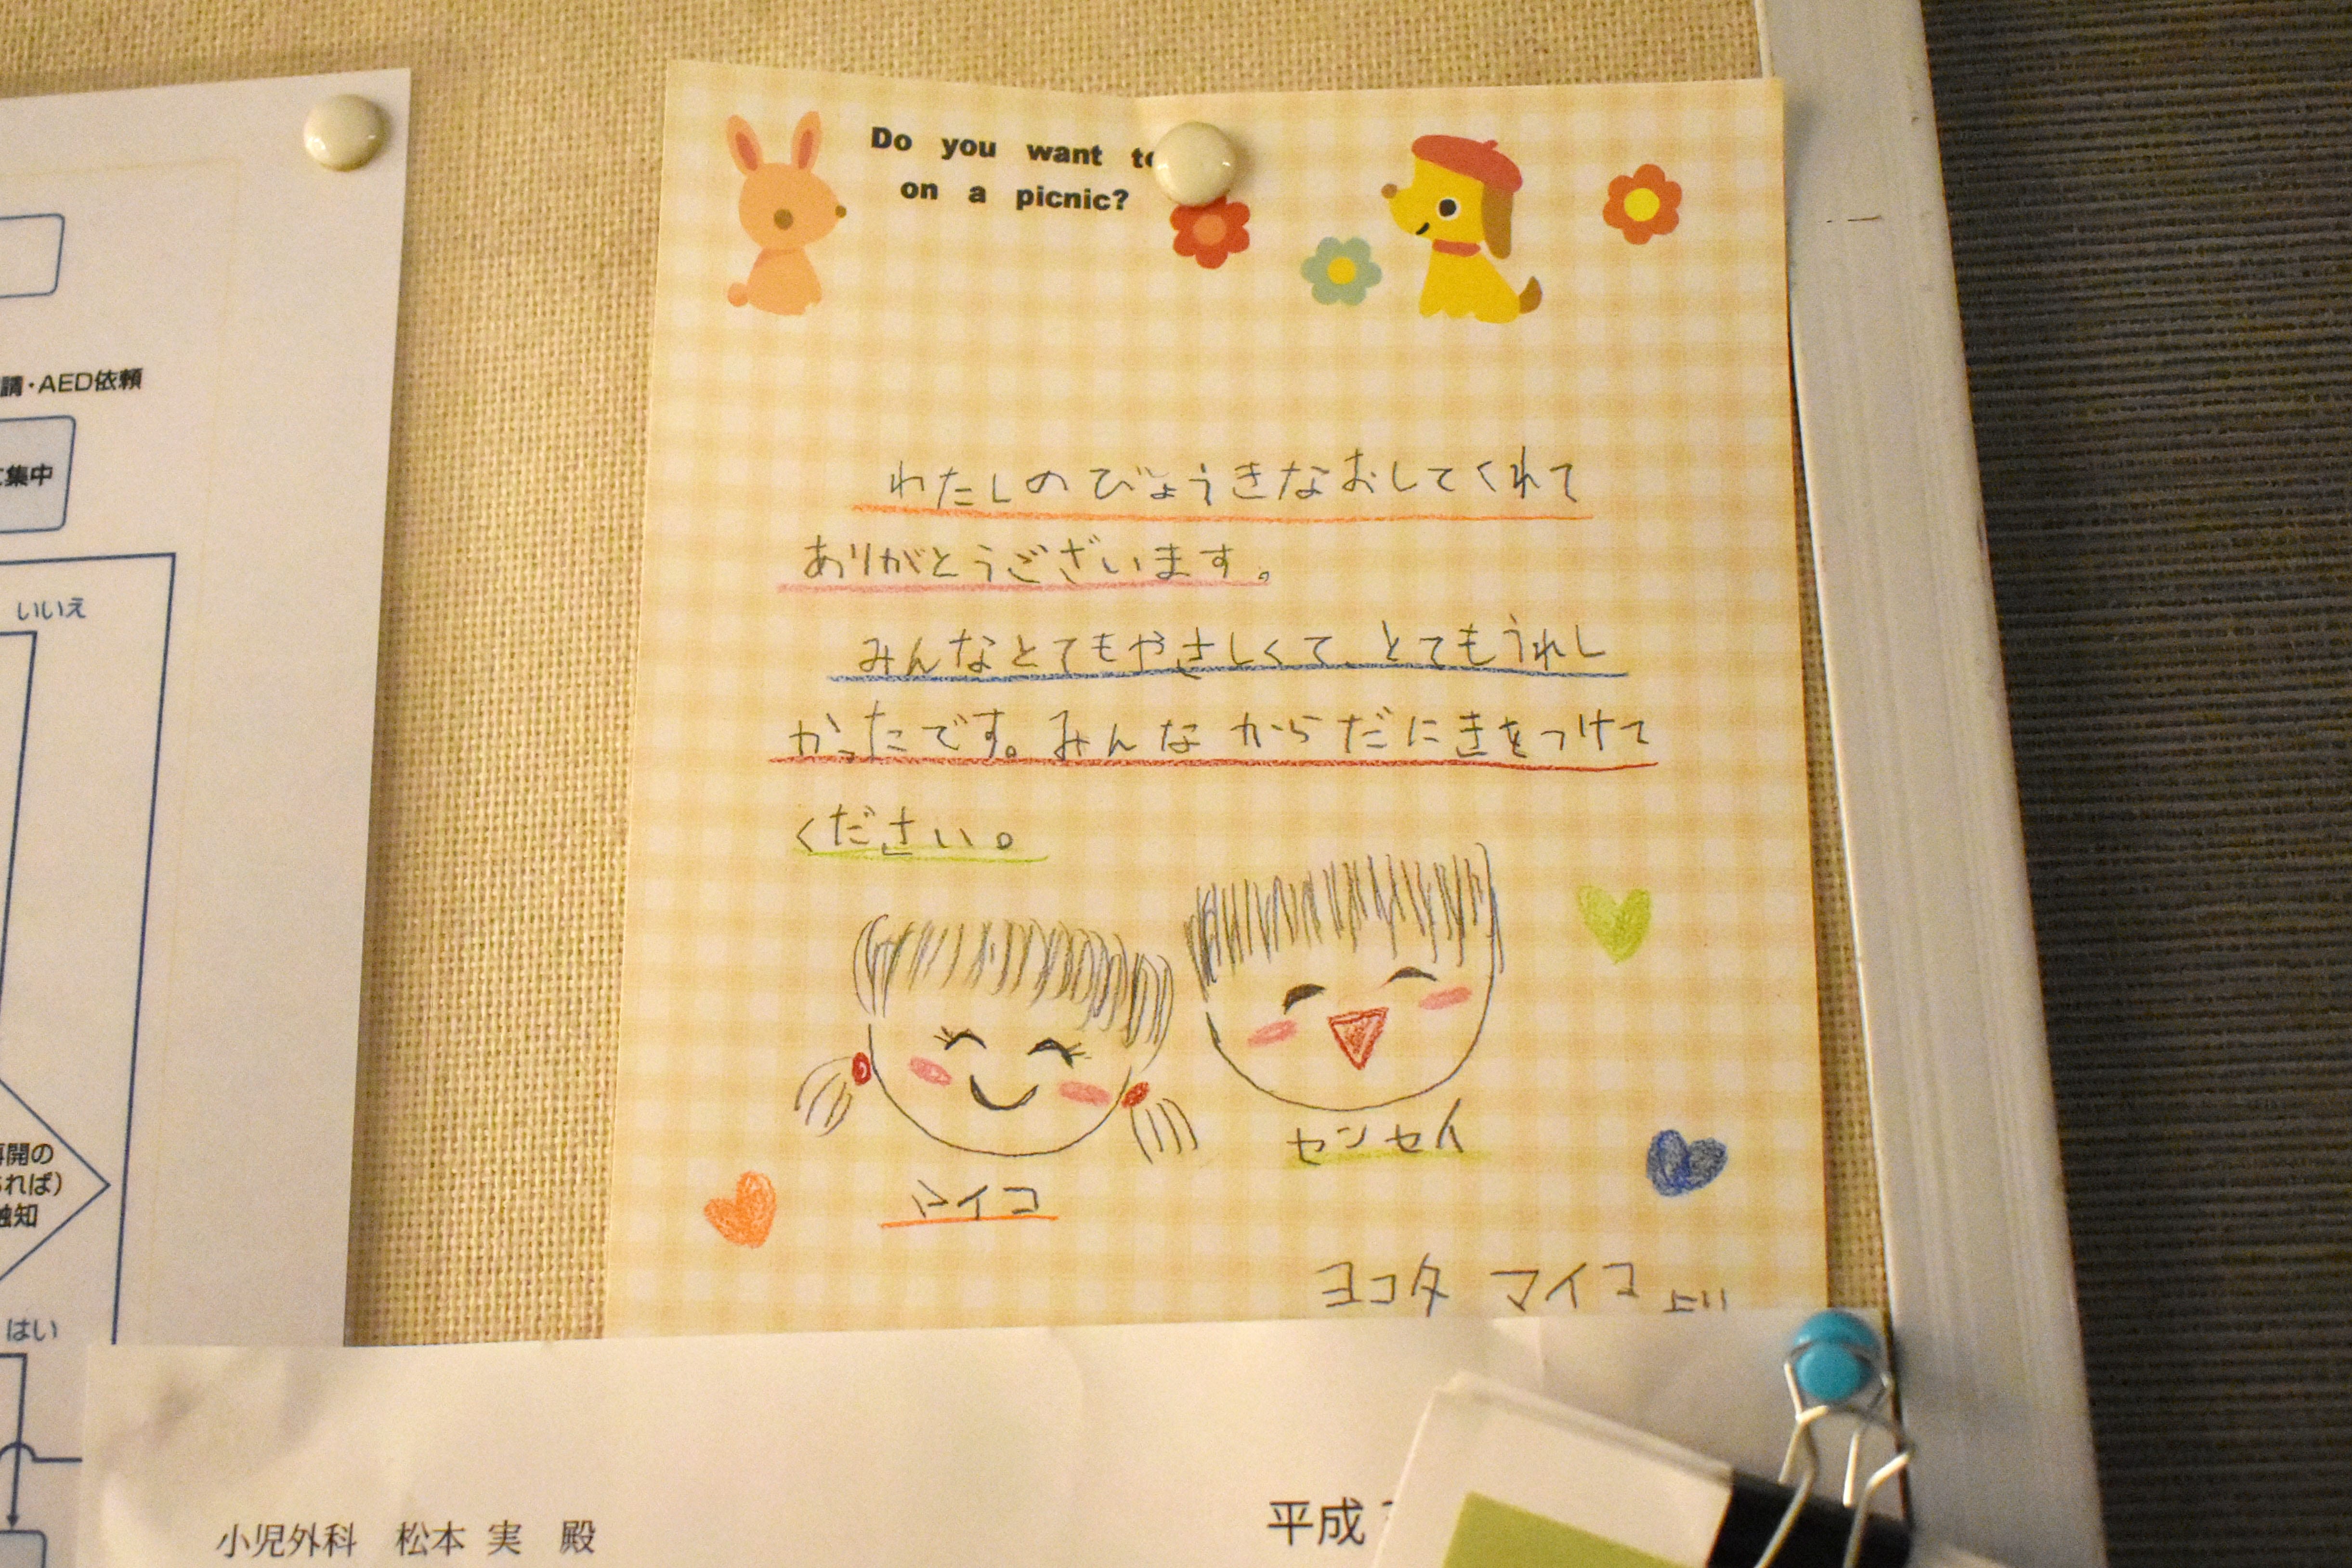 Do you want
on a picnic?
わたしのびょうきなおしてくれて
ありがとうございます。
みんなとてもやさしくて、とてもうれし
かったです。みんなからだにきをつけて
ください。
センセイ
マイコ
ヨコタ マイコより
請・AED依頼
集中
いいえ
再開の
れば)
触知
はい
小児外科 松本 実 殿
平成